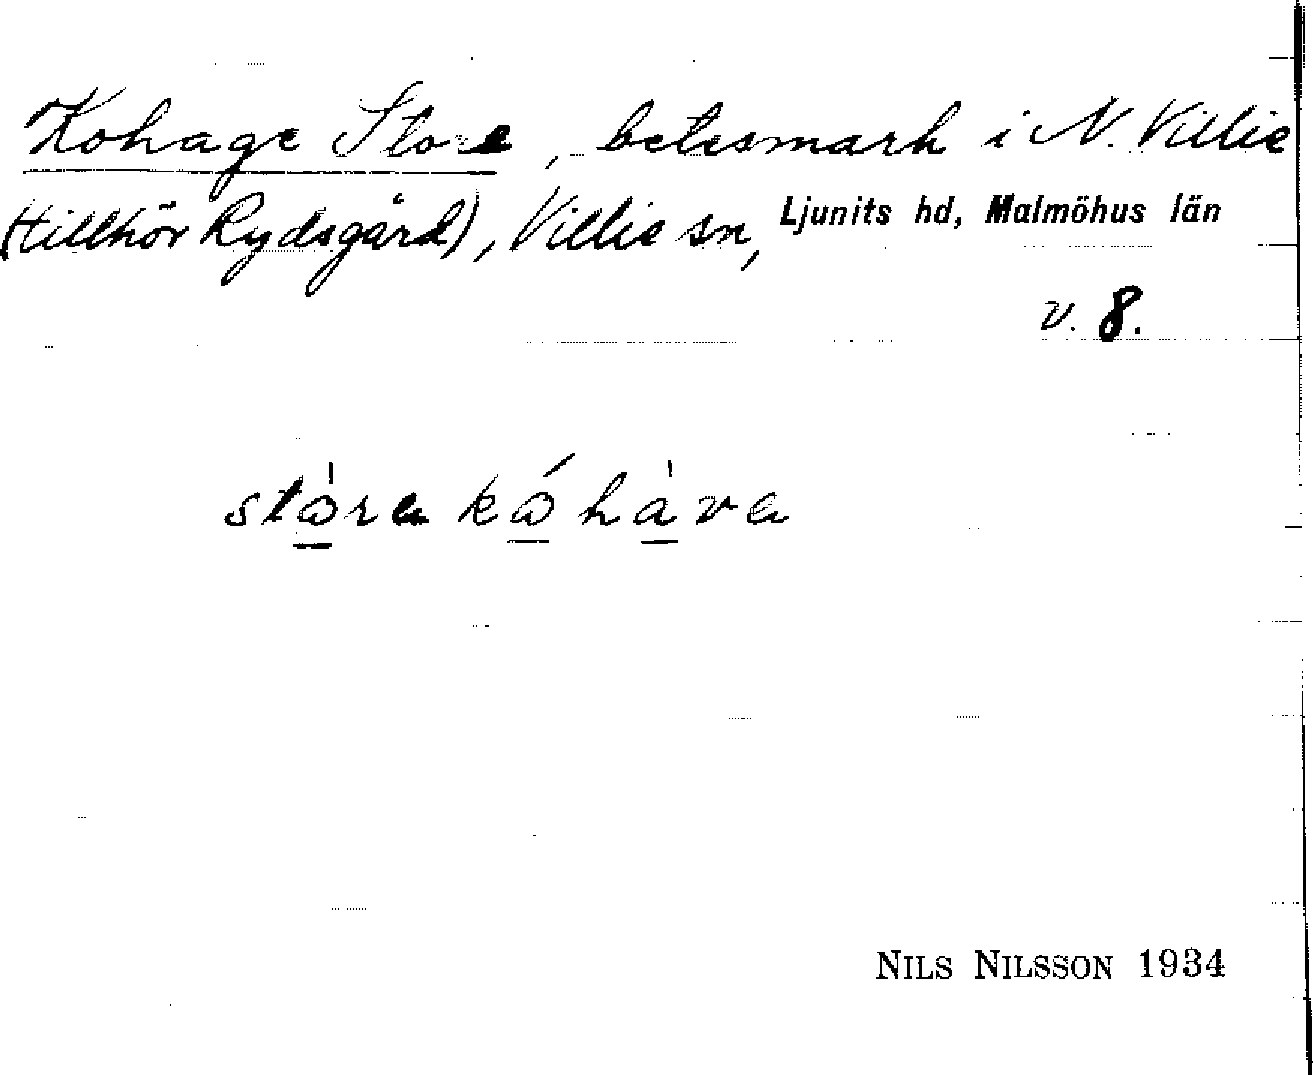 Kohage Store, betesmark i N. Villie
(tillhör Rydsgård), Villie sn, Ljunits hd, Malmöhus län
v. 8.
stòra kóhàva
NILS NILSSON 1934